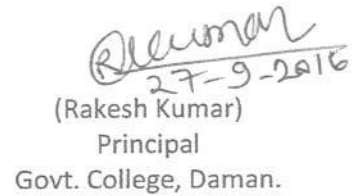 27-9-2016
(Rakesh Kumar)
Principal
Govt. College, Daman.